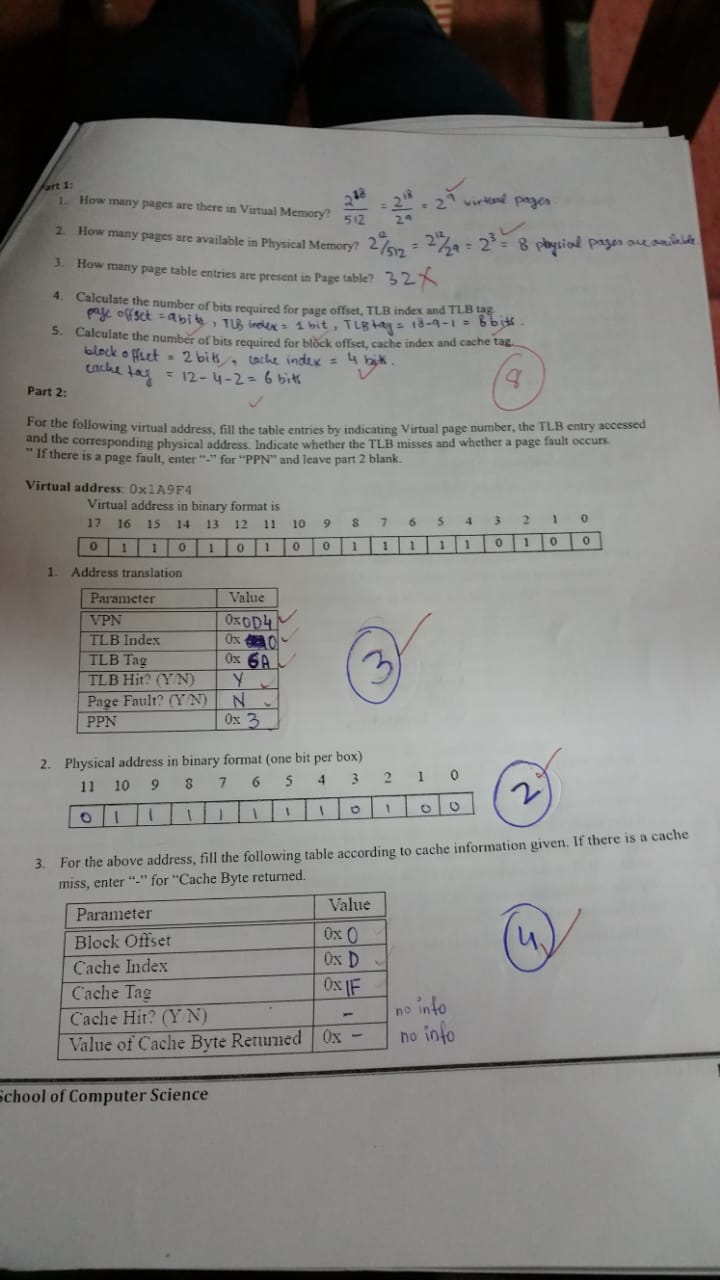 Part 1:
1. How many pages are there in Virtual Memory? 2^18/512 = 2^18/2^9 = 2^9 virtual pages
2. How many pages are available in Physical Memory? 2^12/512 = 2^12/2^9 = 2^3 = 8 physical pages are available.
3. How many page table entries are present in Page table? 32 X
4. Calculate the number of bits required for page offset, TLB index and TLB tag.
page offset = 9 bits, TLB index = 1 bit, TLB tag = 18-9-1 = 8 bits.
5. Calculate the number of bits required for block offset, cache index and cache tag.
block offset = 2 bits, cache index = 4 bits.
cache tag = 12-4-2 = 6 bits
8
Part 2:
For the following virtual address, fill the table entries by indicating Virtual page number, the TLB entry accessed
and the corresponding physical address. Indicate whether the TLB misses and whether a page fault occurs.
" If there is a page fault, enter “-” for “PPN” and leave part 2 blank.
Virtual address: 0x1A9F4
Virtual address in binary format is
17 16 15 14 13 12 11 10 9 8 7 6 5 4 3 2 1 0
0 1 1 0 1 0 1 0 0 1 1 1 1 1 0 1 0 0
1. Address translation
Parameter Value
VPN 0x0D4
TLB Index 0x 0
TLB Tag 0x 6A
TLB Hit? (Y/N) Y
Page Fault? (Y/N) N
PPN 0x 3
3
2. Physical address in binary format (one bit per box)
11 10 9 8 7 6 5 4 3 2 1 0
0 1 1 1 1 1 1 1 0 1 0 0
2
3. For the above address, fill the following table according to cache information given. If there is a cache
miss, enter “-” for “Cache Byte returned.
Parameter Value
Block Offset 0x 0
Cache Index 0x D
Cache Tag 0x 1F
Cache Hit? (Y/N) - no info
Value of Cache Byte Returned 0x - no info
4
School of Computer Science